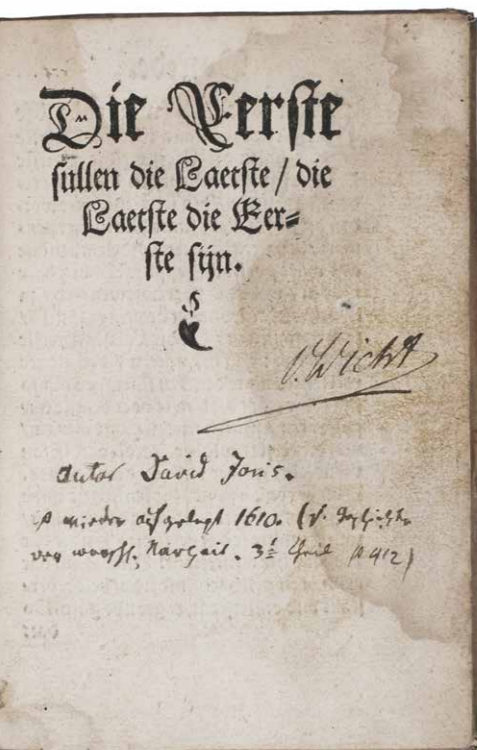 Die Eerste
sullen die Laetste / die
Laetste die Eer⸗
ste sijn.
v. Wicht
Autor David Joris.
ist wieder aufgelegt 1610. (v.
der Narheit. 3t. Theil p 412)